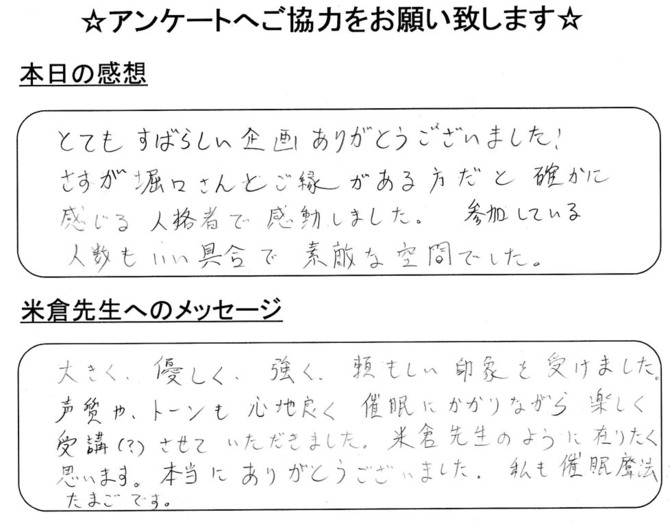 ☆アンケートへご協力をお願い致します☆
本日の感想
とても すばらしい 企画 ありがとうございました!
さすが 堀口さんと ご縁 がある 方だと 確かに
感じる 人格者で 感動しました。 参加している
人数も いい 具合で 素敵な 空間でした。
米倉先生へのメッセージ
大きく、優しく、強く、頼もしい 印象を 受けました。
声質や、トーンも 心地良く 催眠にかかりながら 楽しく
受講(?)させて いただきました。米倉先生のように 在りたく
思います。本当に ありがとうございました。 私も 催眠魔法
たまごです。